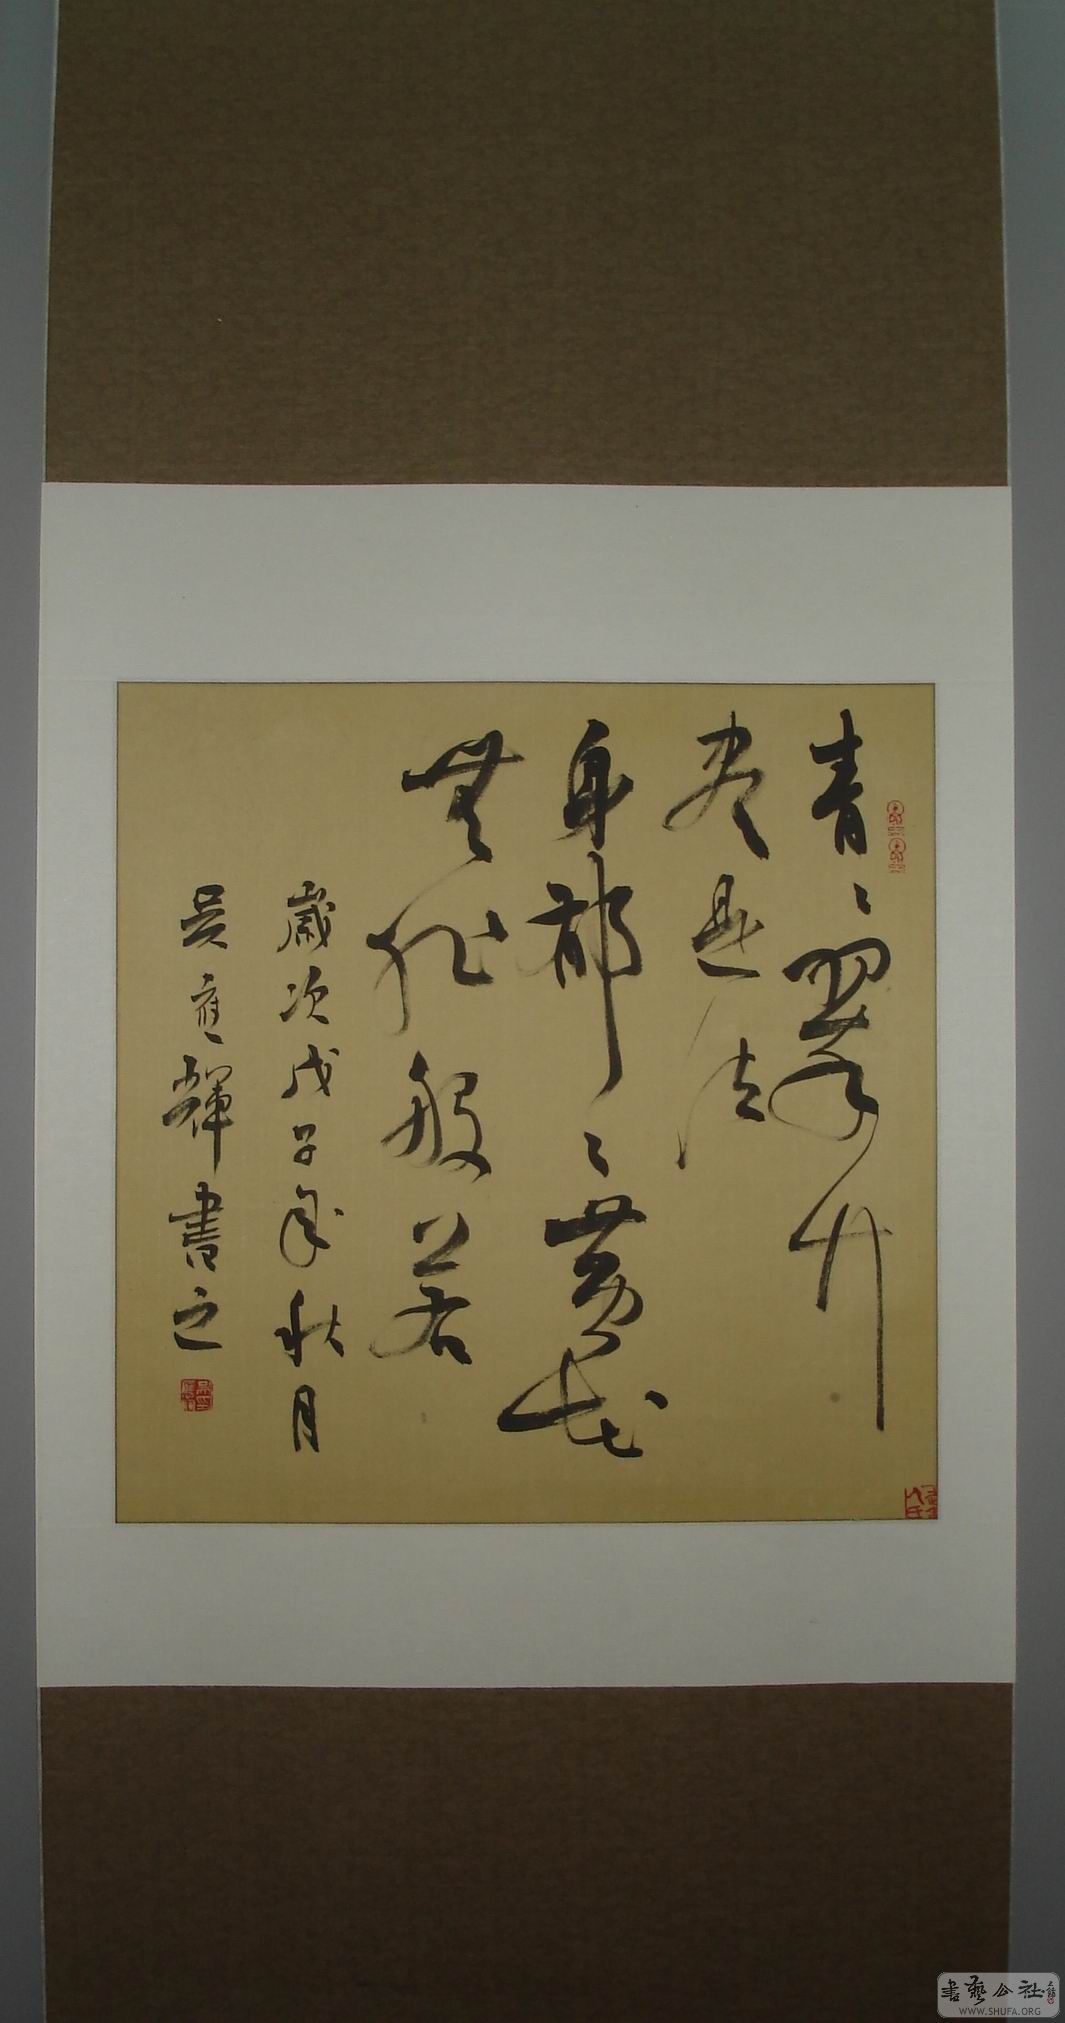 青々翠竹
盡是法
身郁々黄花
無非般若
歲次戊子年秋月
吴應輝書之
書藝公社
WWW.SHUFA.ORG